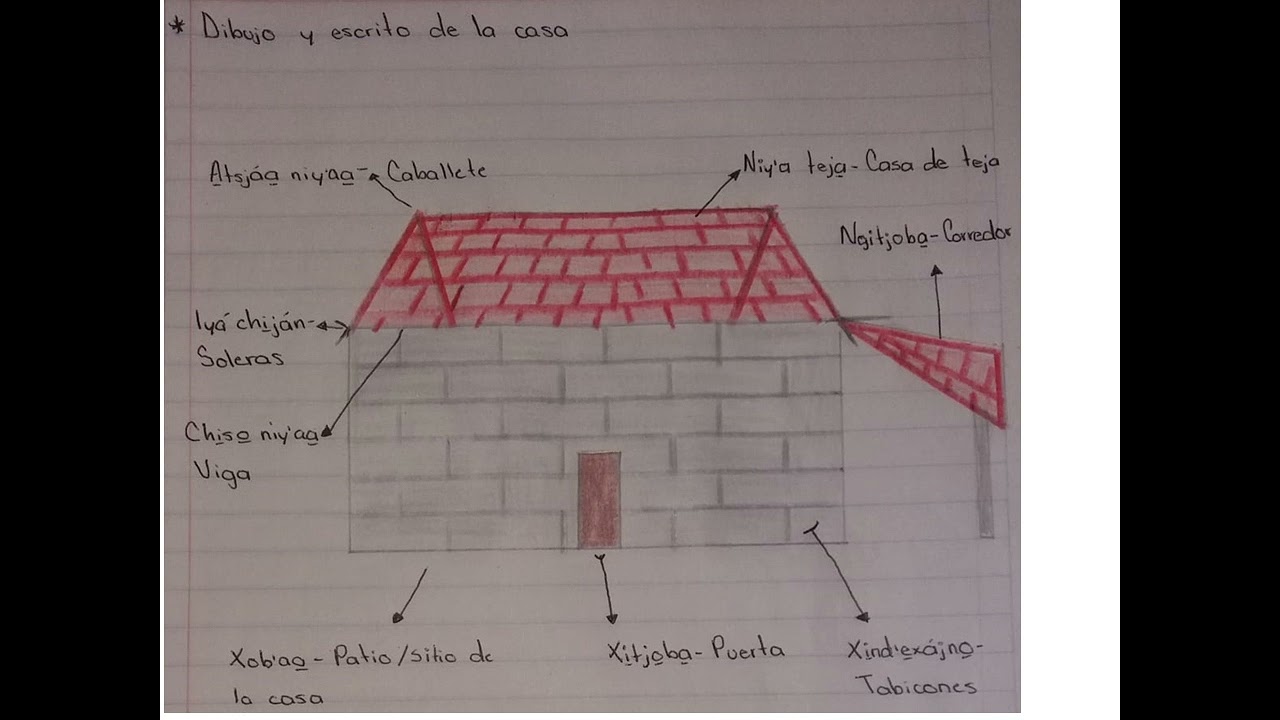 * Dibujo y escrito de la casa
A̲tsjáa̲ niy'aa̲- Caballete
Niy'a teja̲- Casa de teja
Ngitjoba̲- Corredor
Iyá̲ chi̲ján-
Soleras
Chi̲so̲ niy'aa̲
Viga
Xob'ao̲ - Patio/sitio de
la casa
Xi̲tjo̲ba̲- Puerta
Xind'e̲xájno̲-
Tabicones